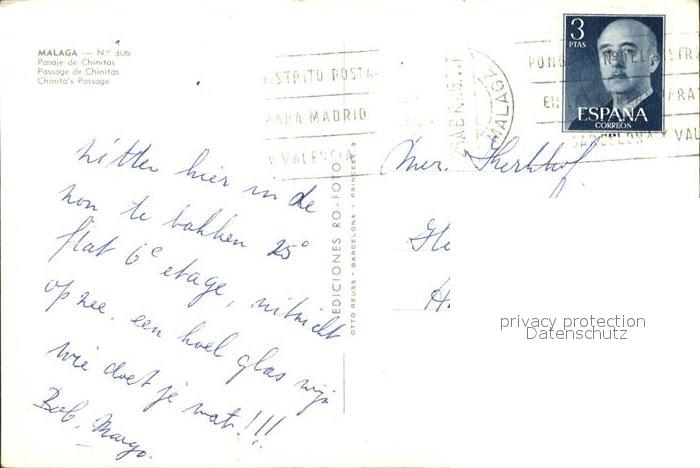 MALAGA — N.º 306
Pasaje de Chinitas
Passage de Chinitas
Chinita's Passage
Zitten hier in de
zon te bakken 25°
flat 6e etage, uitzicht
op zee. een koel glas wijn
wie doet je wat!!!
Bob, Margo.
EDICIONES RO-FOTO
OTTO REUSS - BARCELONA - PRINCESA
DISTRITO POSTAL
PARA MADRID
Y VALENCIA
MALAGA
3
PTAS
ESPAÑA
CORREOS
PONG Nº DEL
EN
BARCELONA Y VAL
Mer. Kerkhof
H.
privacy protection
Datenschutz